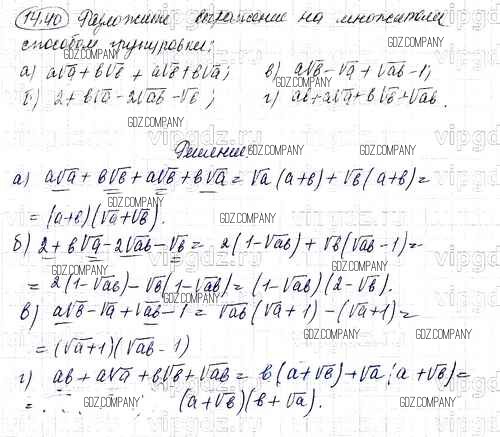 14.40 Разложите выражение на множители
способом группировки:
а) a√a + b√b + a√b + b√a; в) a√b - √a + √ab - 1;
б) 2 + b√a - 2√ab - √b; г) ab + a√a + b√b + √ab.
Решение
а) a√a + b√b + a√b + b√a = √a (a+b) + √b (a+b) =
= (a+b)(√a + √b).
б) 2 + b√a - 2√ab - √b = 2(1-√ab) + √b(√ab - 1) =
= 2(1-√ab) - √b(1-√ab) = (1-√ab)(2-√b).
в) a√b - √a + √ab - 1 = √ab (√a + 1) - (√a + 1) =
= (√a+1)(√ab - 1)
г) ab + a√a + b√b + √ab = b(a+√b) + √a(a+√b) =
= (a+√b)(b+√a).
GDZ.COMPANY
vipgdz.ru